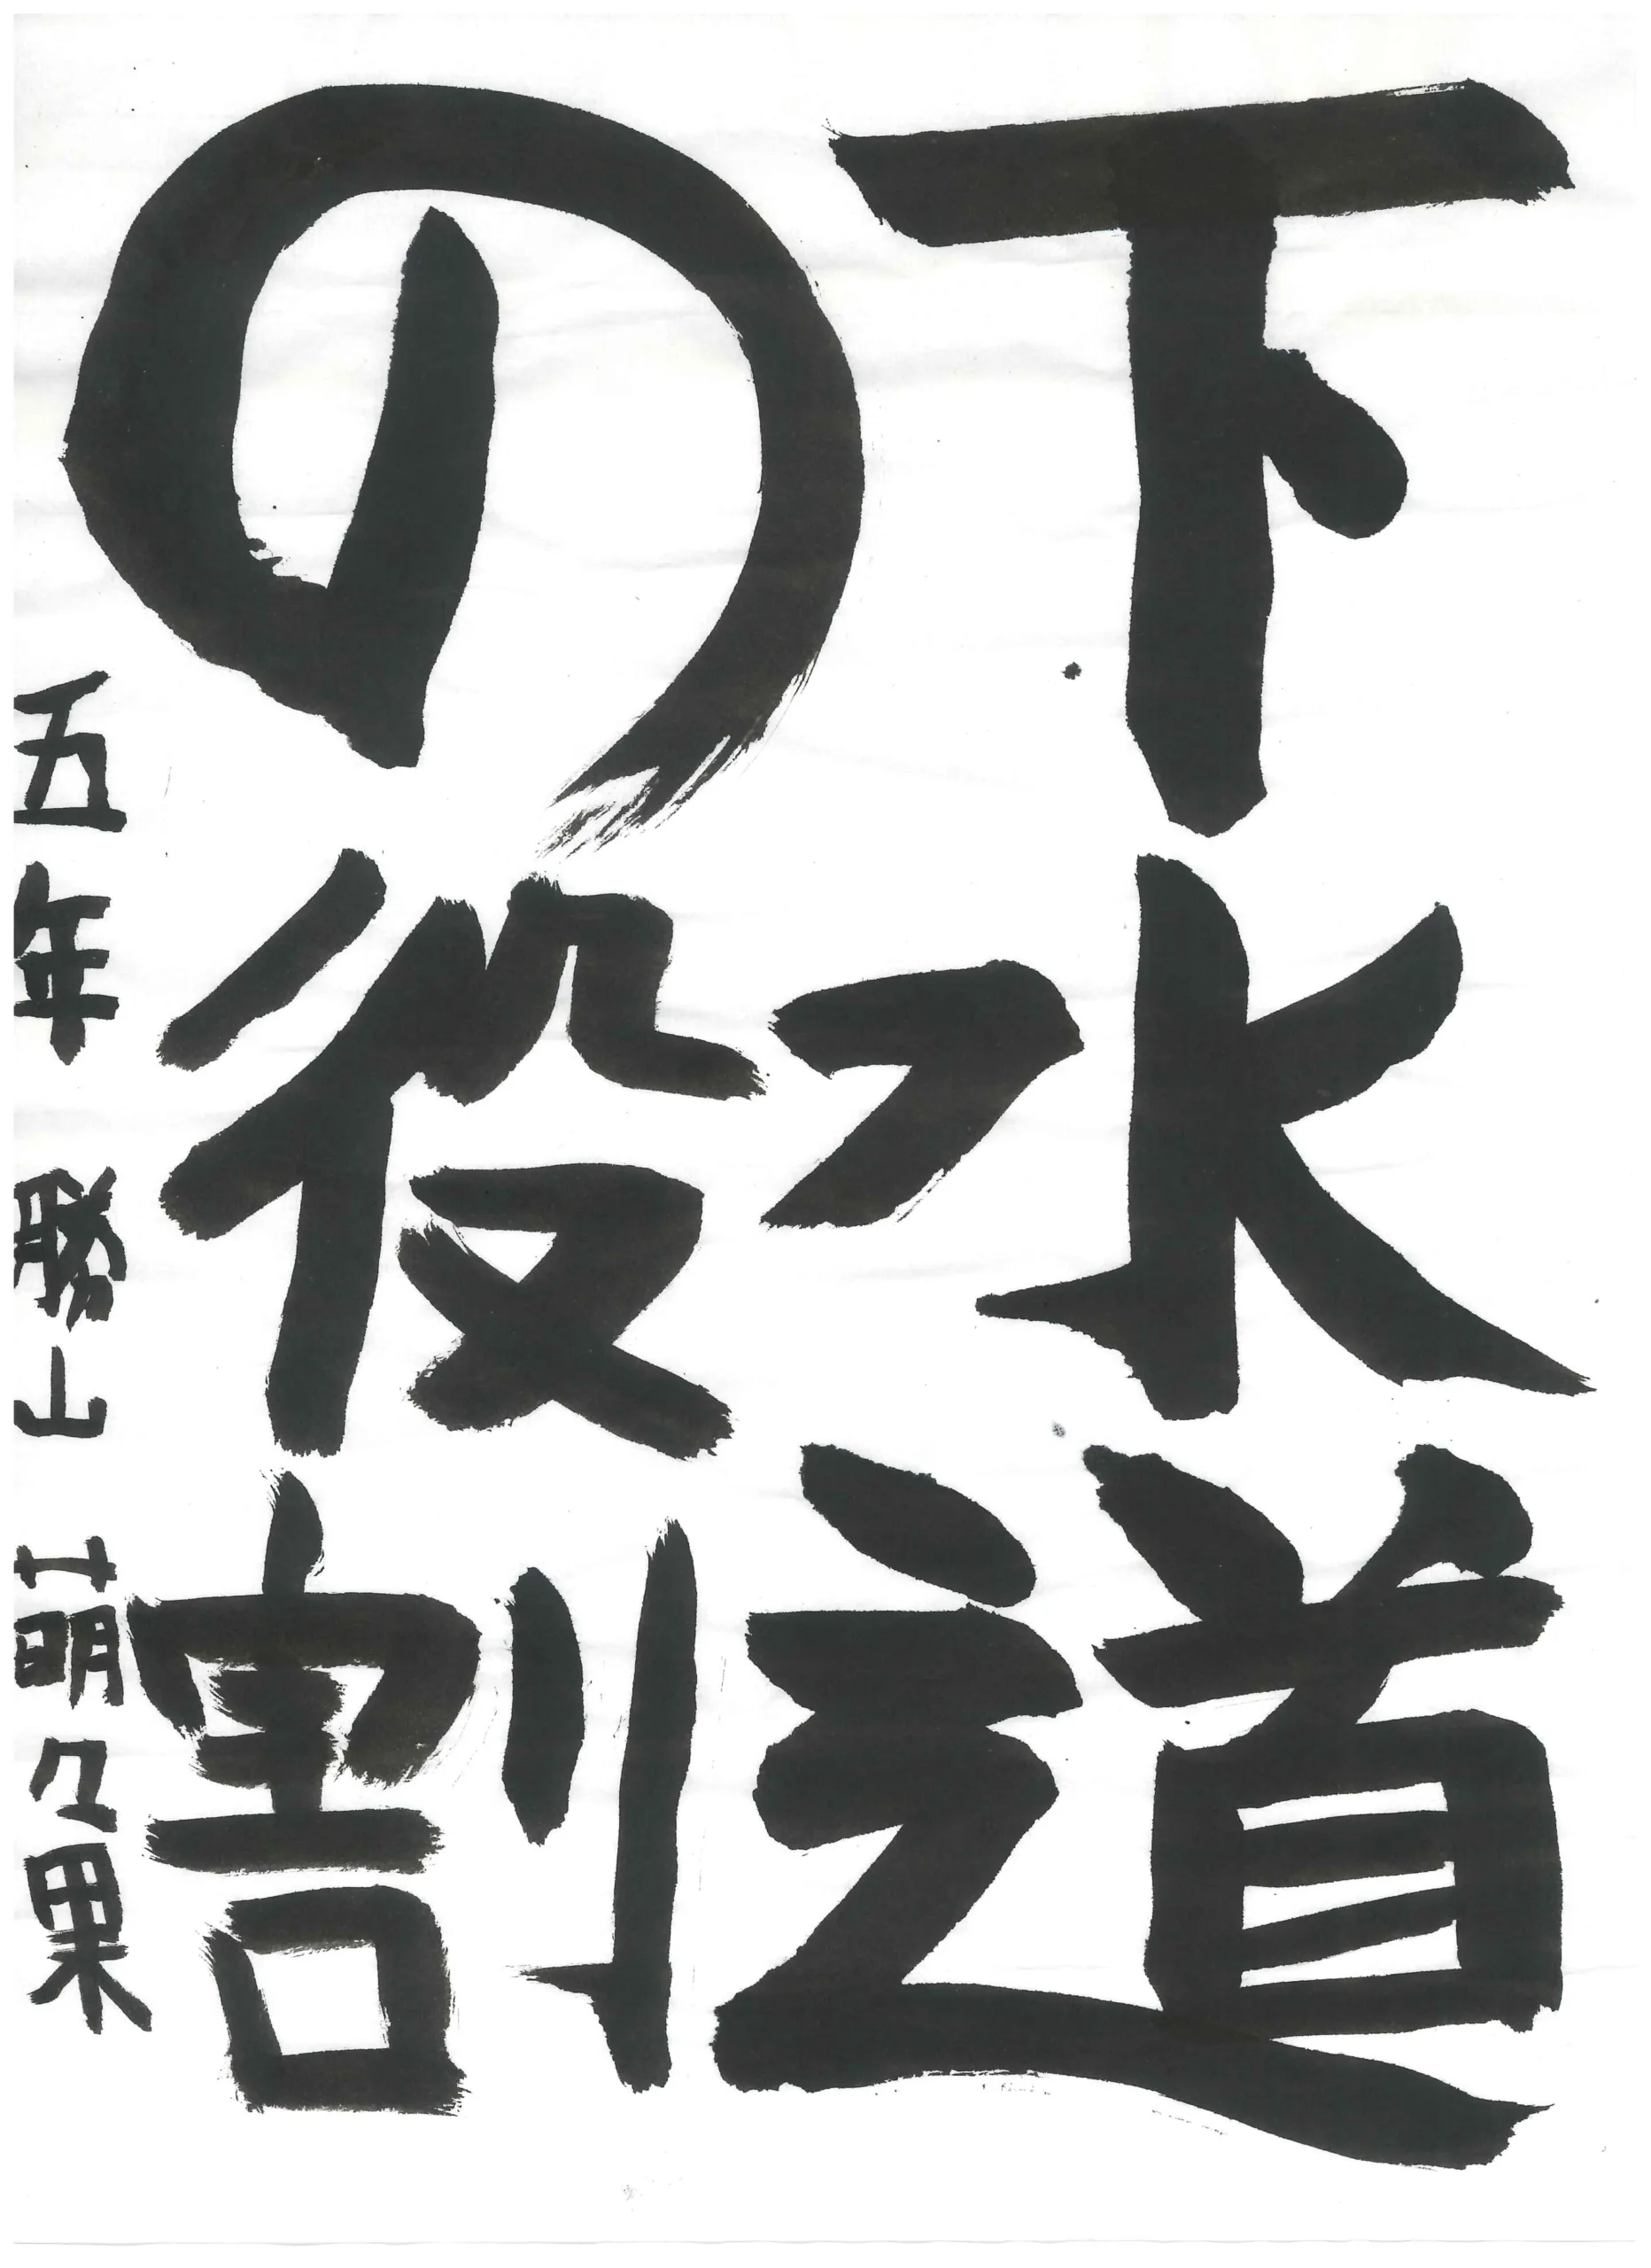 下水道
の役割
五年 勝山 萌々果